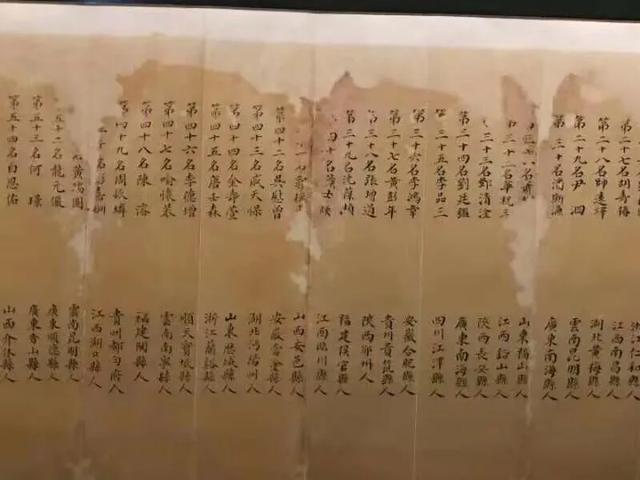 第二十七名胡壽椿
浙江仁和縣人
第二十八名帥遠燡
湖北黃梅縣人
第二十九名尹泗
雲南昆明縣人
第三十名馮譽
廣東南海縣人
山東福山縣人
三十二名華祝三
江西鉛山縣人
三十三名鄭清淦
陝西長安縣人
第三十四名劉廷鑑
廣東南海縣人
三十五名李品三
四川江津縣人
第三十六名李鴻章
安徽合肥縣人
第三十七名黃彭年
貴州貴筑縣人
第三十八名張增道
陝西鄜州人
第三十九名沈葆楨
福建侯官縣人
四十名
江西臨川縣人
山西安邑縣人
第四十二名吳慰曾
安徽當塗縣人
第四十三名戚天保
湖北沔陽州人
第四十四名金壽萱
山東歷城縣人
第四十五名唐壬森
浙江蘭谿縣人
第四十六名李德增
順天寶坻縣人
第四十七名喻懷恭
雲南南寧縣人
第四十八名陳濬
福建閩縣人
第四十九名周毓
貴州都勻府人
江西湖口縣人
黃
雲南昆明縣人
五十二名龍元僖
廣東順德縣人
第五十三名何璟
廣東香山縣人
第五十四名白恩佑
山西介休縣人